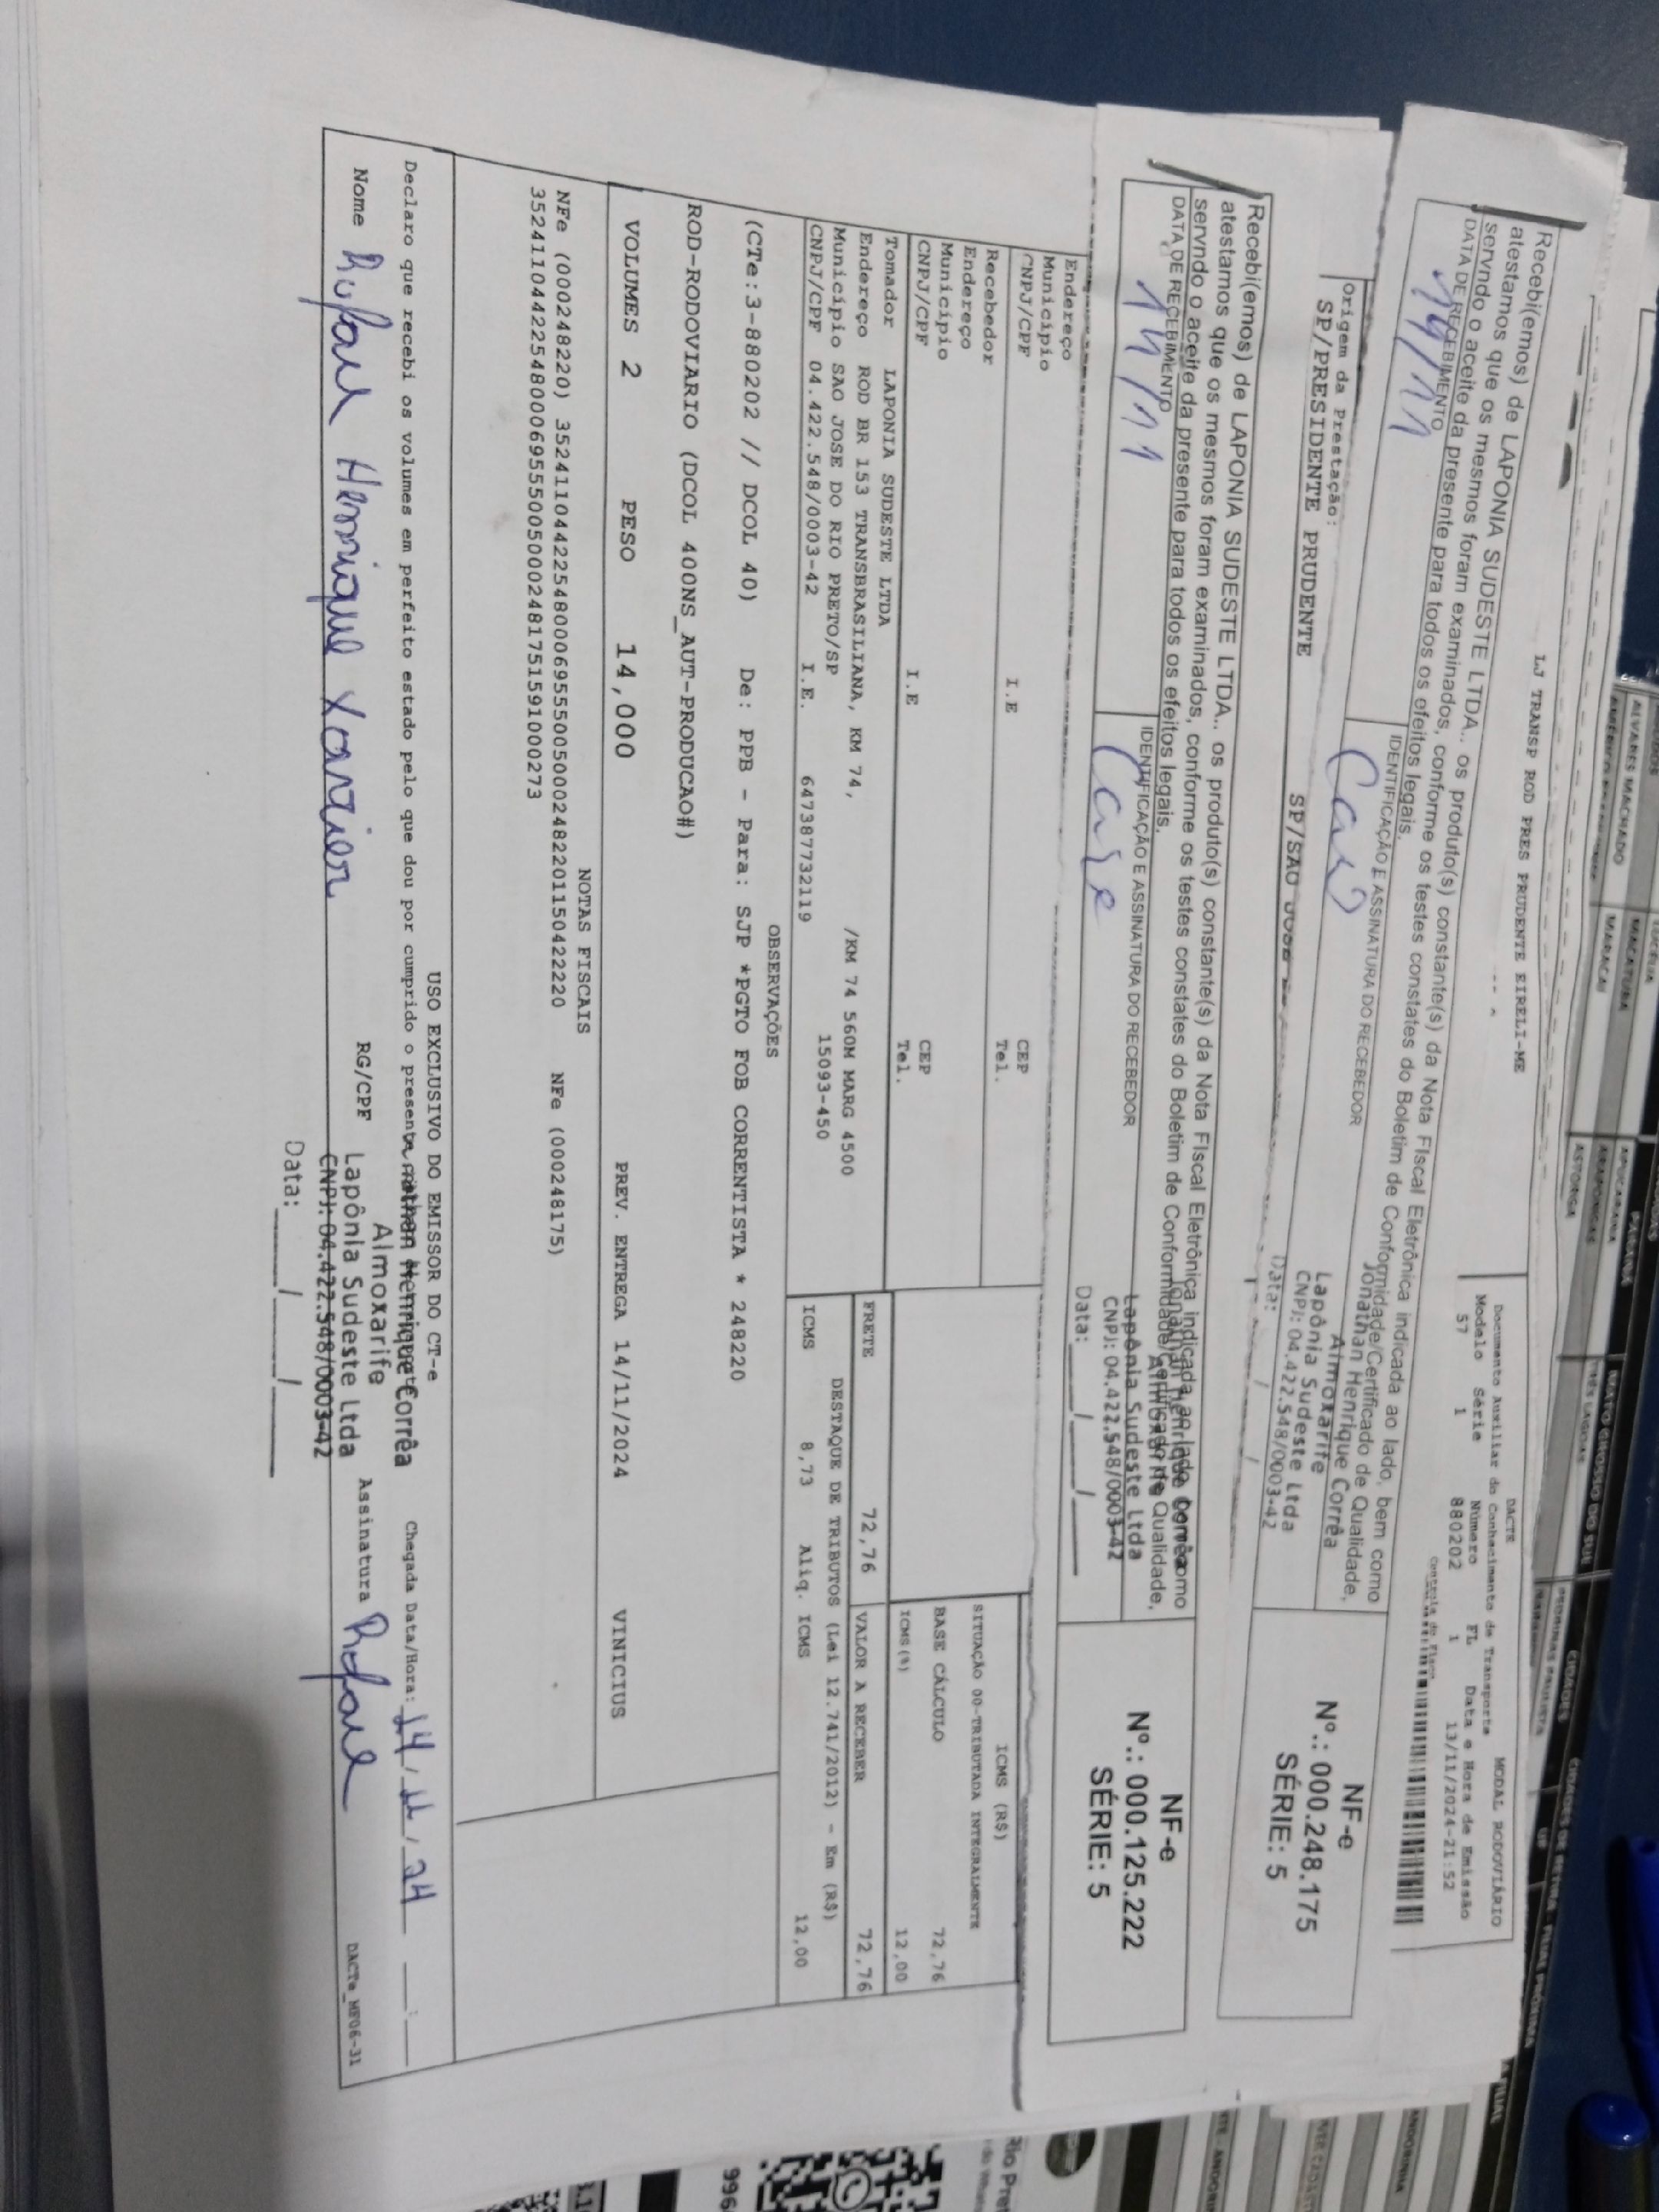 LJ TRANSP ROD PRES PRUDENTE EIRELI-ME
DACTE
Documento Auxiliar do Conhecimento de Transporte
MODAL RODOVIÁRIO
Modelo Série Número FL Data e Hora de Emissão
57 1 880202 1 13/11/2024-21:52
Controle do Fisco
Recebi(emos) de LAPONIA SUDESTE LTDA.. os produto(s) constante(s) da Nota FIscal Eletrônica indicada ao lado, bem como
atestamos que os mesmos foram examinados, conforme os testes constates do Boletim de Conformidade/Certificado de Qualidade,
servndo o aceite da presente para todos os efeitos legais.
DATA DE RECEBIMENTO
IDENTIFICAÇÃO E ASSINATURA DO RECEBEDOR
14/11
Jonathan Henrique Corrêa
Almoxarife
Lapônia Sudeste Ltda
CNPJ: 04.422.548/0003-42
Data: / /
NF-e
Nº.: 000.248.175
SÉRIE: 5
Origem da Prestação:
SP/PRESIDENTE PRUDENTE
SP/SAO JOSE
Recebi(emos) de LAPONIA SUDESTE LTDA.. os produto(s) constante(s) da Nota FIscal Eletrônica indicada ao lado, bem como
atestamos que os mesmos foram examinados, conforme os testes constates do Boletim de Conformidade/Certificado de Qualidade,
servndo o aceite da presente para todos os efeitos legais.
DATA DE RECEBIMENTO
IDENTIFICAÇÃO E ASSINATURA DO RECEBEDOR
14/11
Lapônia Sudeste Ltda
CNPJ: 04.422.548/0003-42
Data: / /
NF-e
Nº.: 000.125.222
SÉRIE: 5
Endereço
Município CEP
CNPJ/CPF I.E Tel.
Recebedor
Endereço
Município CEP
CNPJ/CPF I.E Tel.
ICMS (R$)
SITUAÇÃO 00-TRIBUTADA INTEGRALMENTE
BASE CÁLCULO 72,76
ICMS(%) 12,00
Tomador LAPONIA SUDESTE LTDA
Endereço ROD BR 153 TRANSBRASILIANA, KM 74, /KM 74 560M MARG 4500
Município SAO JOSE DO RIO PRETO/SP 15093-450
CNPJ/CPF 04.422.548/0003-42 I.E. 647387732119
FRETE 72,76 VALOR A RECEBER 72,76
DESTAQUE DE TRIBUTOS (Lei 12.741/2012) - Em (R$)
ICMS 8,73 Aliq. ICMS 12,00
OBSERVAÇÕES
(CTe:3-880202 // DCOL 40) De: PPB - Para: SJP *PGTO FOB CORRENTISTA * 248220
ROD-RODOVIARIO (DCOL 400NS_AUT-PRODUCAO#)
VOLUMES 2 PESO 14,000 PREV. ENTREGA 14/11/2024 VINICIUS
NOTAS FISCAIS
NFe (000248220) 35241104422548000695550050002482201150422220 NFe (000248175)
35241104422548000695550050002481751591000273
USO EXCLUSIVO DO EMISSOR DO CT-e
Declaro que recebi os volumes em perfeito estado pelo que dou por cumprido o presente
Chegada Data/Hora: 14/11/24 :
Nome Rafael Henrique Xavier RG/CPF Assinatura Rafael
Henrique Corrêa
Almoxarife
Lapônia Sudeste Ltda
CNPJ: 04.422.548/0003-42
Data: / /
DACTe_MF06-31
ALVARES MACHADO
MARACAI
ASTORGA
ARAPONGAS
APUCARANA
PARANÁ
MATO GROSSO DO SUL
TRÊS LAGOAS
CIDADES
Rio Pret
996